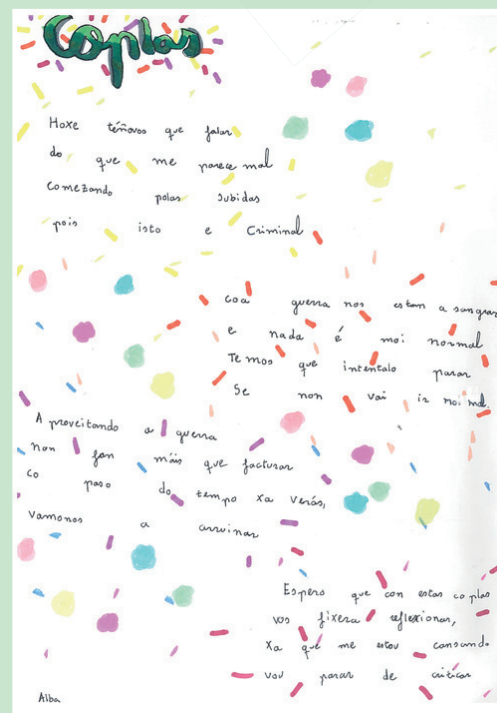 Coplas
Hoxe téñovos que falar
do que me parece mal
comezando polas subidas
pois isto e criminal
coa guerra nos estan a sangrar
e nada é moi normal
Temos que intentalo parar
Se non vai ir moi mal.
Aproveitando a guerra
non fan máis que facturar
co paso do tempo xa verás,
vamonos a arruinar
Espero que con estas coplas
vos fixera reflexionar,
xa que me estou cansando
vou parar de criticar
Alba